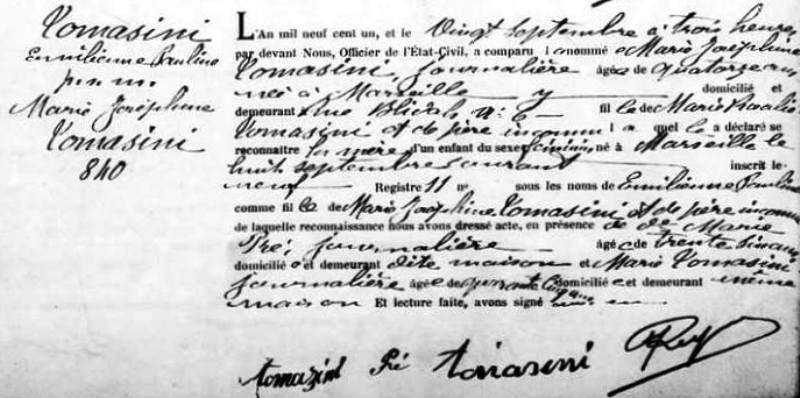 Tomasini
Emilienne Pauline
p. n. m.
Marie Joséphine
Tomasini
840
L'An mil neuf cent un, et le Vingt septembre à trois heures
par devant Nous, Officier de l'État-Civil, a comparu l a nommé e Marie Joséphine
Tomasini, journalière âgée de quatorze ans
née à Marseille y domicilié et
demeurant rue Blidah n: 6 fille de Marie Rosalie
Tomasini et de père inconnu l a quelle a déclaré se
reconnaitre la mère d'un enfant du sexe féminin, né à Marseille le
huit septembre courant inscrit le
neuf Registre 11 n° sous les noms de Emilienne Pauline
comme fille de Marie Joséphine Tomasini et de père inconnu
de laquelle reconnaissance nous avons dressé acte, en présence de Marie
Pré, journalière âgée de trente cinq ans
domicilié e et demeurant dite maison et Marie Tomasini
journalière âgée de quarante cinq ans domiciliée et demeurant même
maison Et lecture faite, avons signé
tomasini Pré tomasini